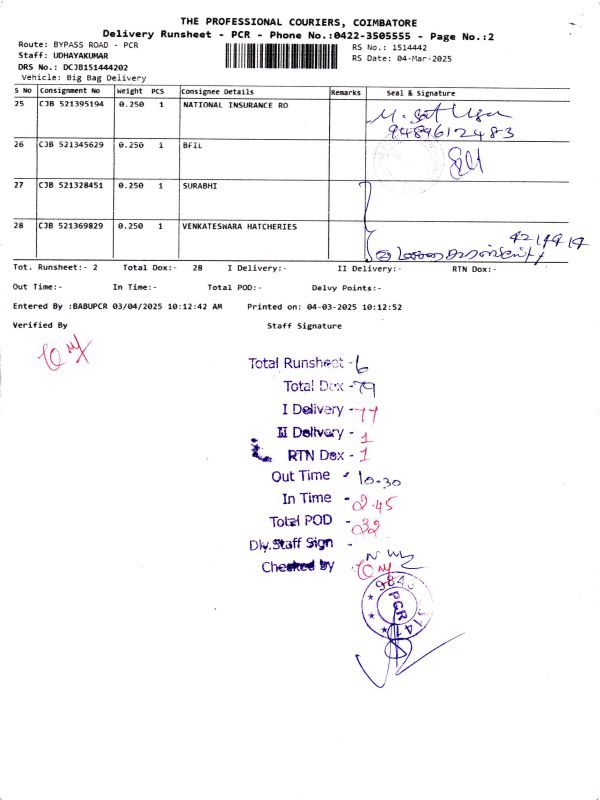 THE PROFESSIONAL COURIERS, COIMBATORE
Delivery Runsheet - PCR - Phone No.:0422-3505555 - Page No.:2
Route: BYPASS ROAD - PCR
Staff: UDHAYAKUMAR
DRS No.: DCJB151444202
Vehicle: Big Bag Delivery
RS No.: 1514442
RS Date: 04-Mar-2025
S No Consignment No Weight PCS Consignee Details Remarks Seal & Signature
25 CJB 521395194 0.250 1 NATIONAL INSURANCE RO
9489612483
26 CJB 521345629 0.250 1 BFIL
27 CJB 521328451 0.250 1 SURABHI
28 CJB 521369829 0.250 1 VENKATESWARA HATCHERIES
4214414
Tot. Runsheet:- 2 Total Dox:- 28 I Delivery:- II Delivery:- RTN Dox:-
Out Time:- In Time:- Total POD:- Delvy Points:-
Entered By :BABUPCR 03/04/2025 10:12:42 AM Printed on: 04-03-2025 10:12:52
Verified By Staff Signature
Total Runsheet - 6
Total Dox - 79
I Delivery - 77
II Delivery - 1
RTN Dox - 1
Out Time - 10-30
In Time - 2.45
Total POD - 32
Dly.Staff Sign -
Checked by
PCR